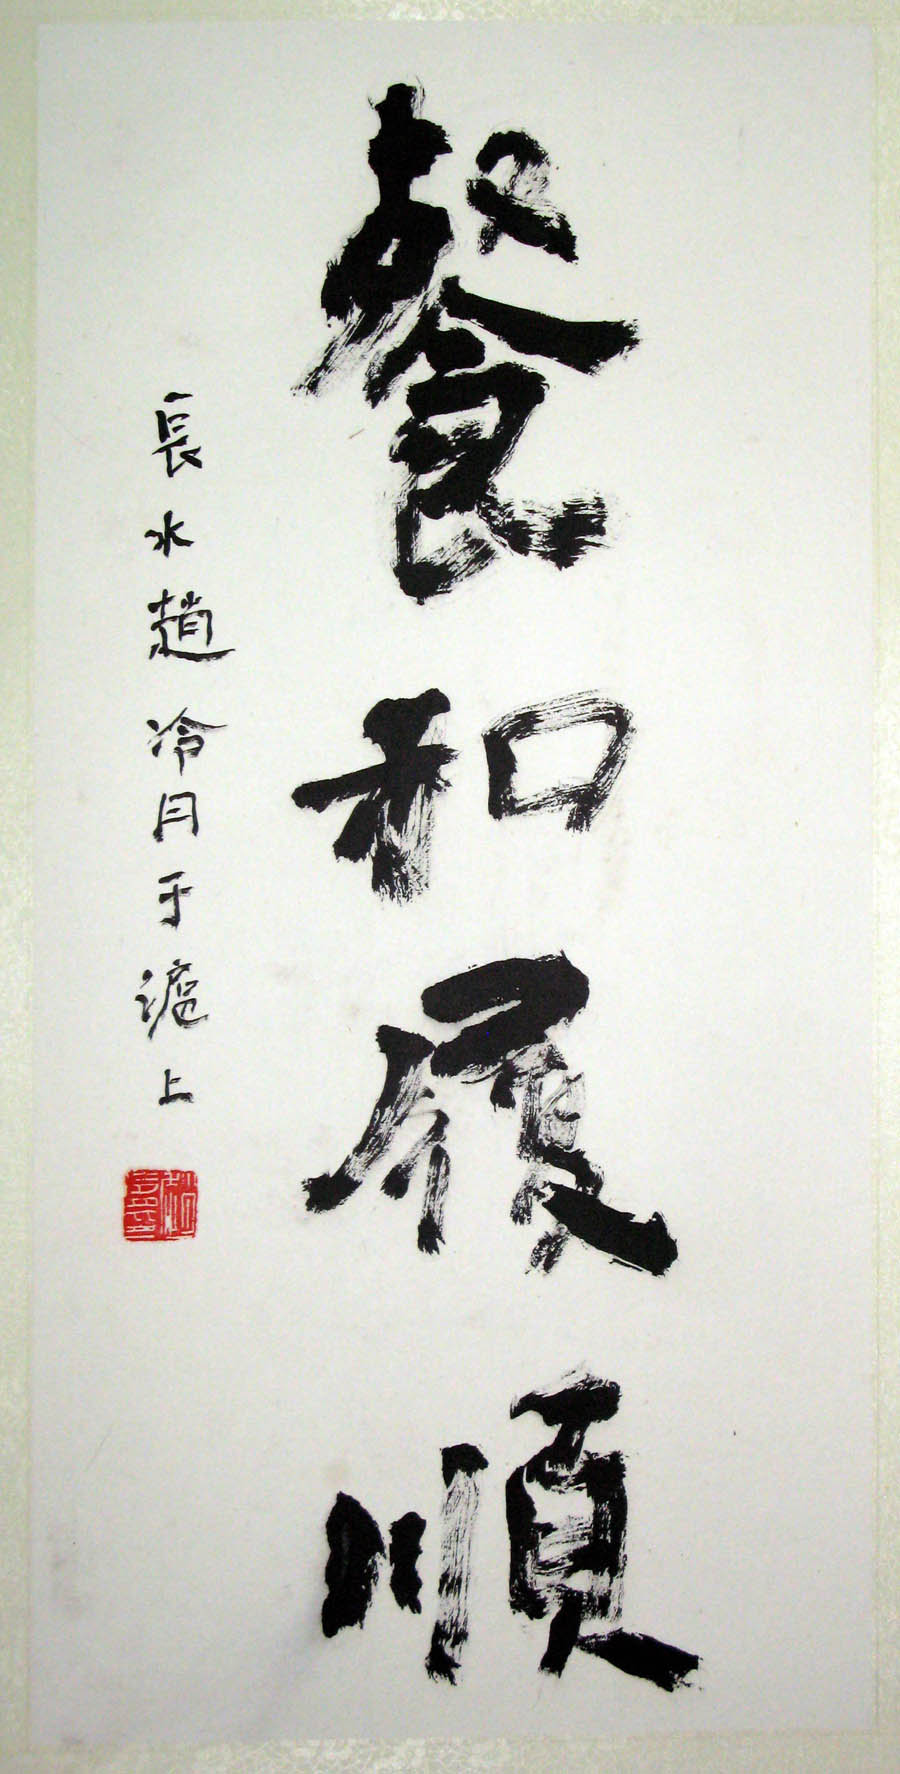 餐和履順
長水趙冷月于滬上